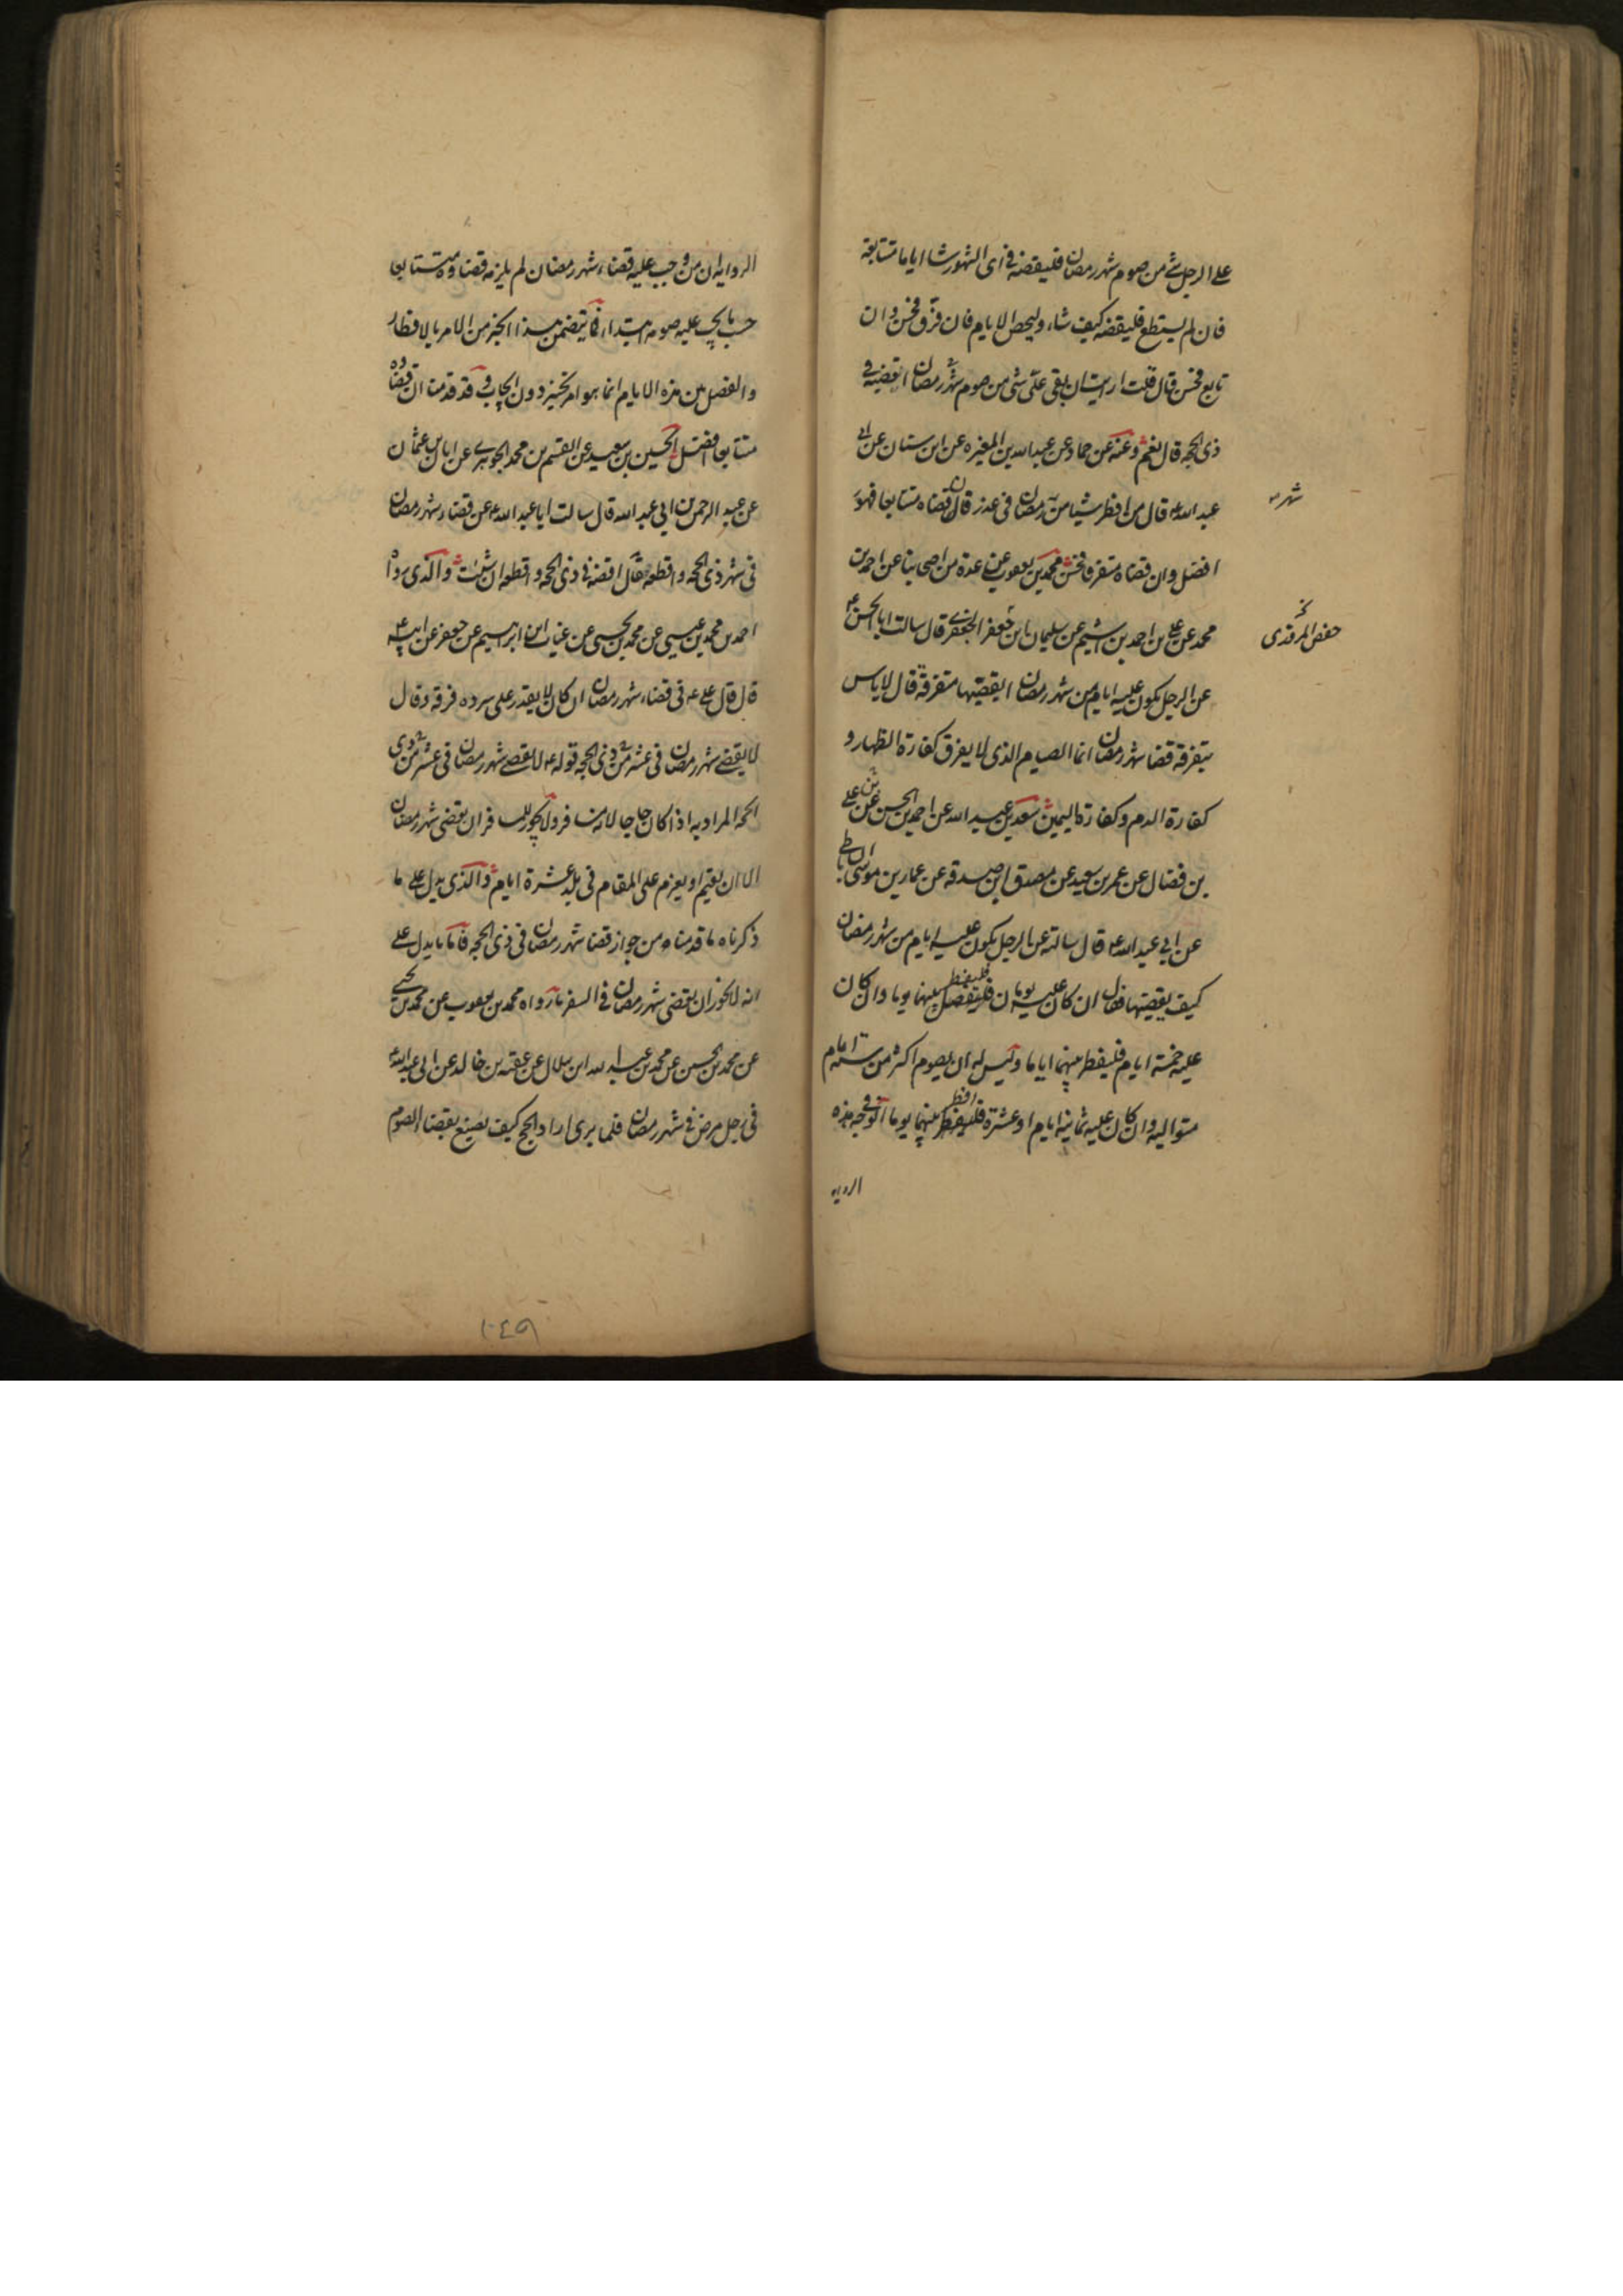 على الرجل شئ من صوم شهر رمضان فليقضه فى اى الشهور شا اياما متتابعة
فان لم يستطع فليقضه كيف شاء وليحص الايام فان فرّق فحسن وان
تابع فحسن قال قلت ارايت ان بقى على شئ من صوم شهر رمضان اقضيه فى
ذى الحجه قال نعم وعنه عن حماد عن عبد الله بن المغيره عن ابن سنان عن ابى
عبد الله ع قال من افطر شيئا من رمضان فى عذر فان قضاه متتابعا فهو
شهر
افضل وان قضاه متفرقا فحسن محمد بن يعقوب عن عدة من اصحابنا عن احمد بن
محمد عن على بن احمد بن اشيم عن سليمان ابن جعفر الجعفرى قال سالت ابا الحسن ع
حفص المروزى
عن الرجل يكون عليه ايام من شهر رمضان ايقضيها متفرقة قال لا باس
بتفرقة قضا شهر رمضان انما الصيام الذى لا يفرق كفارة الظهار و
كفارة الدم وكفارة اليمين سعد بن عبد الله عن احمد بن الحسن بن على
بن فضال عن عمر بن سعيد عن مصدق ابن صدقه عن عمار بن موسى الساباطى
عن ابى عبد الله ع قال سالته عن الرجل يكون عليه ايام من شهر رمضان
كيف يقضيها فقال ان كان عليه يومان فليفصل بينهما يوما وان كان
فليفطر
عليه خمسة ايام فليفطر بينهما اياما وليس له ان يصوم اكثر من ستة ايام
متواليه وان كان عليه ثمانية ايام او عشرة فليفطر بينهما يوما الوجه فى هذه
افطر
الروايه
الروايه ان من وجب عليه قضاء شهر رمضان لم يلزمه قضاوه متتابعا
حسب ما يجب عليه صومه ابتداء فما يتضمن هذا الخبر من الامر بالافطار
والفصل بين هذه الايام انما هو امر تخيير دون ايجاب وقد قدمنا ان قضاءه
متتابعا افضل الحسين بن سعيد عن القسم بن محمد الجوهرى عن ابان بن عثمان
عن عبد الرحمن بن ابى عبد الله قال سالت ابا عبد الله ع عن قضاء شهر رمضان
فى شهر ذى الحجه واقطعه قال اقضه فى ذى الحجه واقطعه ان شئت والذى رواه
احمد بن محمد بن عيسى عن محمد بن يحيى عن غياث ابن ابرهيم عن جعفر عن ابيه ع
قال قال على ع فى قضاء شهر رمضان ان كان لا يقدر على سرده فرقه وقال
لا يقضى شهر رمضان فى عشر من ذى الحجه قوله ع لا يقضى شهر رمضان فى عشر من ذى
الحجه المراد به اذا كان حاجا لانه مسافر ولا يجوز للمسافر ان يقضى شهر رمضان
الا ان يقيم او يعزم على المقام فى بلد عشرة ايام والذى يدل على ما
ذكرناه ما قدمناه من جواز قضا شهر رمضان فى ذى الحجه فاما ما يدل على
انه لا يجوز ان يقضى شهر رمضان فى السفر ما رواه محمد بن يعقوب عن محمد بن يحيى
عن محمد بن الحسن عن محمد بن عبد الله ابن هلال عن عقبه بن خالد عن ابى عبد الله ع
فى رجل مرض فى شهر رمضان فلما برى اراد الحج كيف يصنع بقضا الصوم